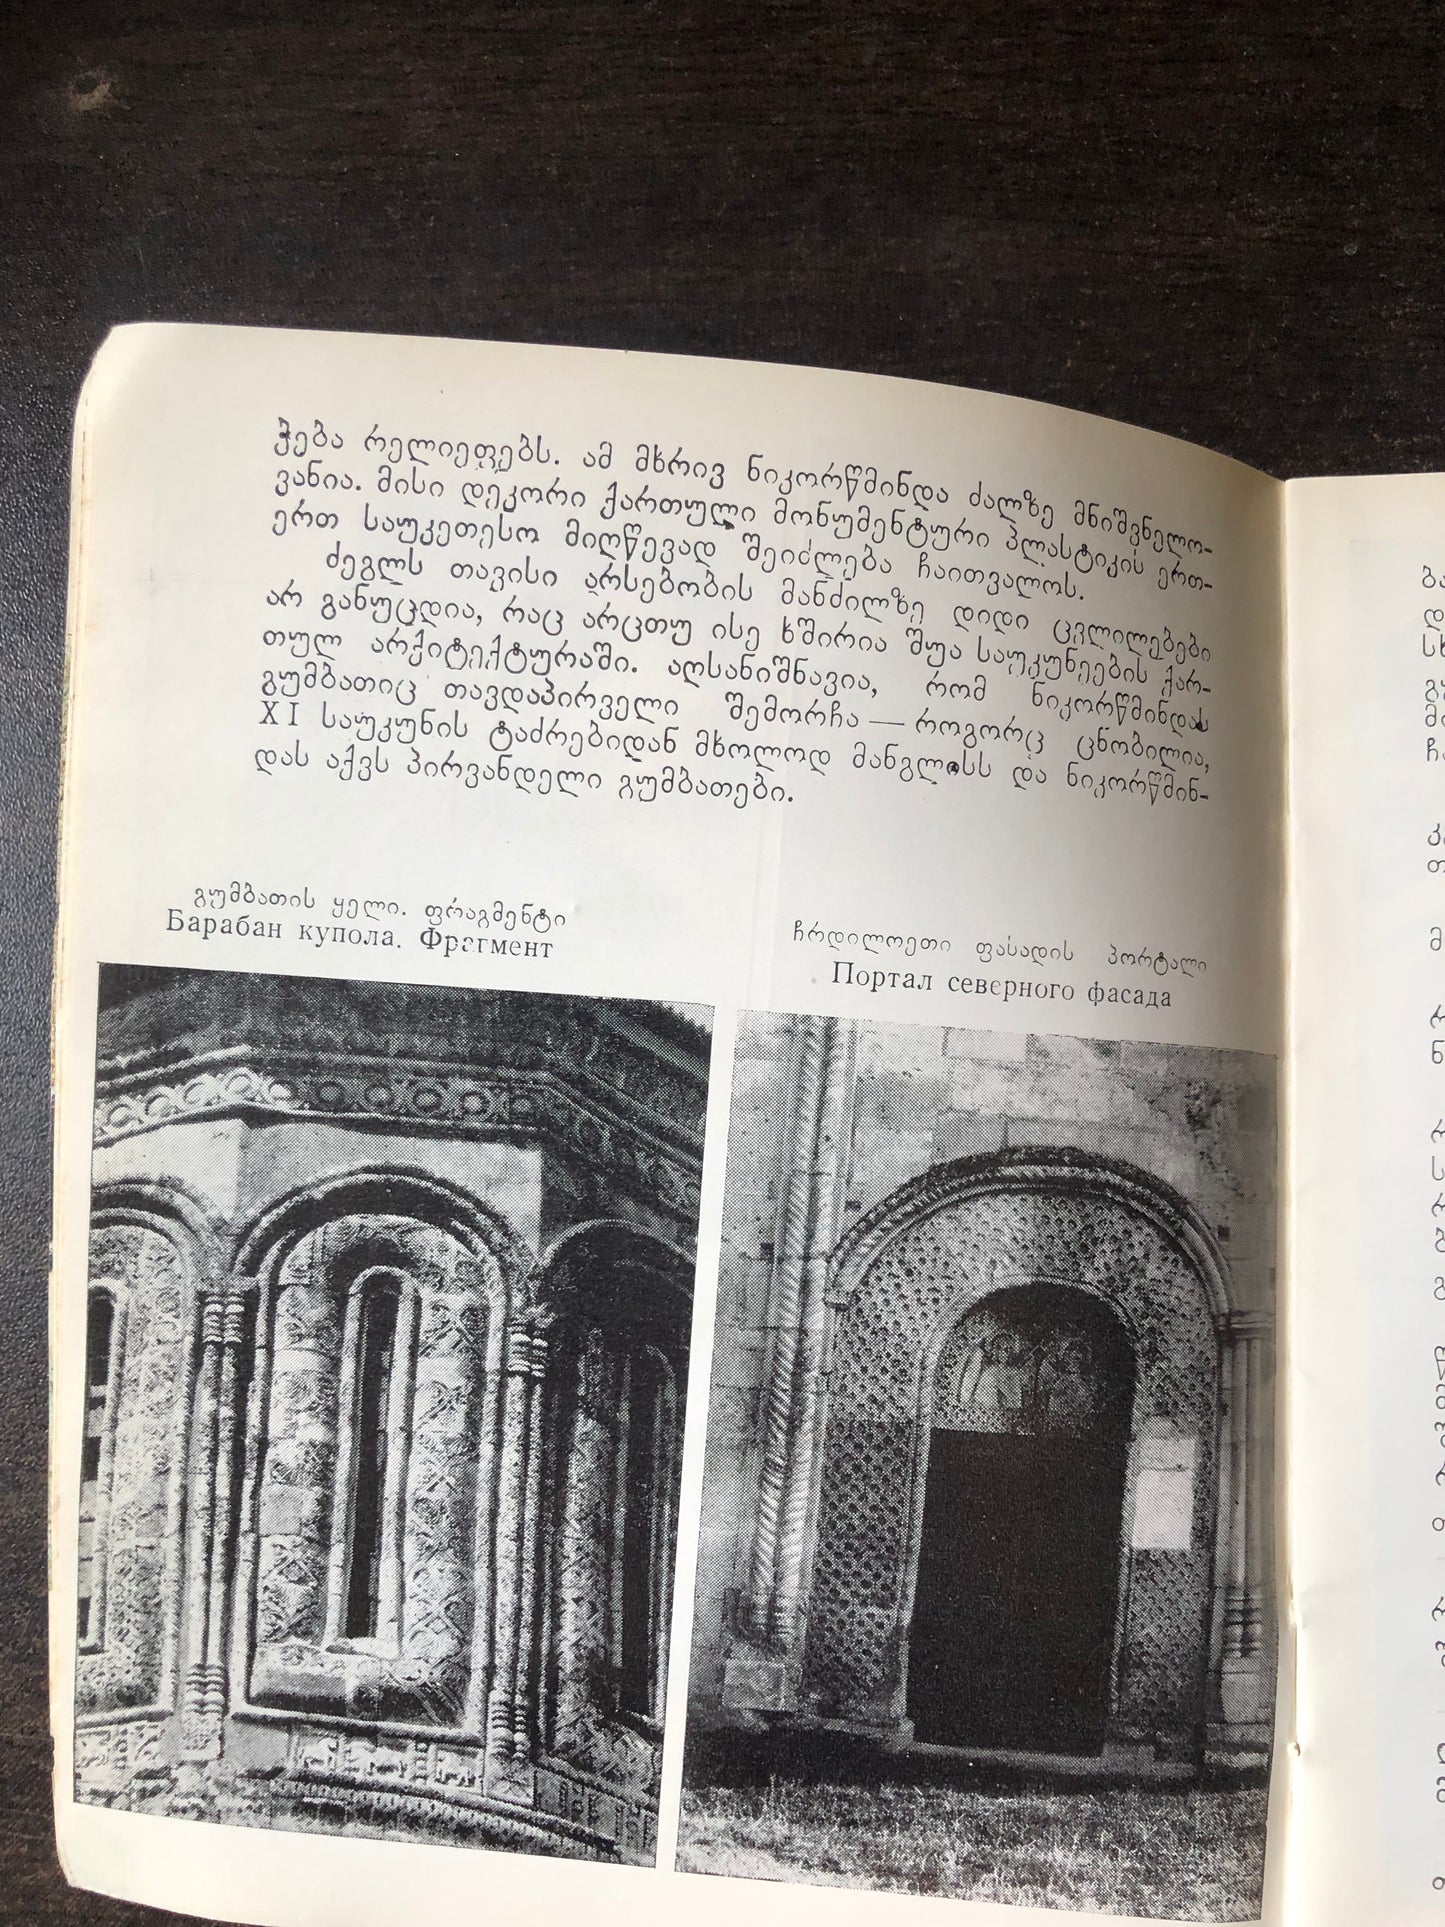 ჭება რელიეფებს. ამ მხრივ ნიკორწმინდა ძალზე მნიშვნელო-
ვანია. მისი დეკორი ქართული მონუმენტური პლასტიკის ერთ-
ერთ საუკეთესო მიღწევად შეიძლება ჩაითვალოს.
ძეგლს თავისი არსებობის მანძილზე დიდი ცვლილებები
არ განუცდია, რაც არცთუ ისე ხშირია შუა საუკუნეების ქარ-
თულ არქიტექტურაში. აღსანიშნავია, რომ ნიკორწმინდას
გუმბათიც თავდაპირველი შემორჩა — როგორც ცნობილია,
XI საუკუნის ტაძრებიდან მხოლოდ მანგლისს და ნიკორწმინ-
დას აქვს პირვანდელი გუმბათები.
გუმბათის ყელი. ფრაგმენტი
Барабан купола. Фрагмент
ჩრდილოეთი ფასადის პორტალი
Портал северного фасада